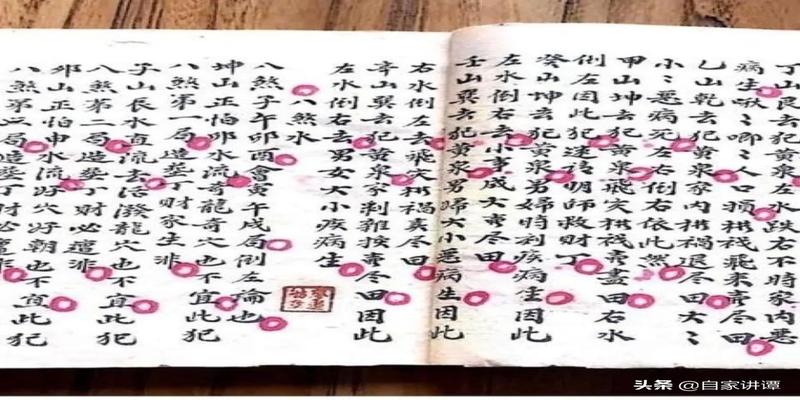 丁山艮去犯黄泉左水跌右不時家内悪
病生啾々唧々人口損飛来賣尽田
乙山乾去犯黄泉家内禍退尽田大々
小々悪病死左右倒右依此然
甲山坤去犯黄泉飛灾賣盡田右水
倒左因此犯迷请明師救财丁
癸山坤去犯黄泉男婦時刻疾病生因此
左水倒右去小事成大賣尽田
壬山巽去犯黄泉男婦大小悪病生因此
右水倒左去飛灾禍賣尽田
辛山巽去犯黄泉家刹雜挨賣尽田因此
左水倒右去男女大小疾病生
八煞水
八煞子午卯酉會寅午戌局倒左淪也
坤山正怕卯水流奇龍奇穴也不宜此犯
八煞第一局造葬丁财家生非
子山辰水直流去活潑龍穴也不宜此犯
八煞第二局造葬丁财必遭非
卯山正怕申水流好穴好朝也不宜此犯
八煞第局造葬丁财必遭非
头条 @自家讲谭